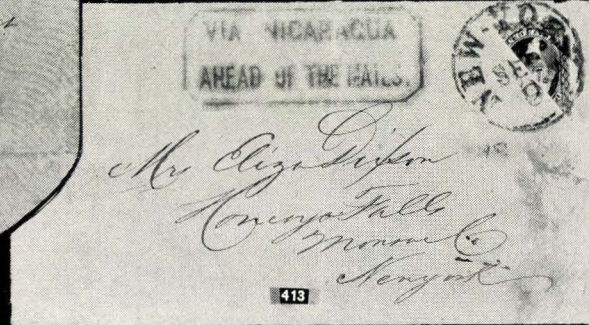 VIA NICARAGUA
AHEAD OF THE MAILS.
NEW-YORK
Mrs Eliza Dixson
Honeoye Falls
Monroe Co
Newyork
413